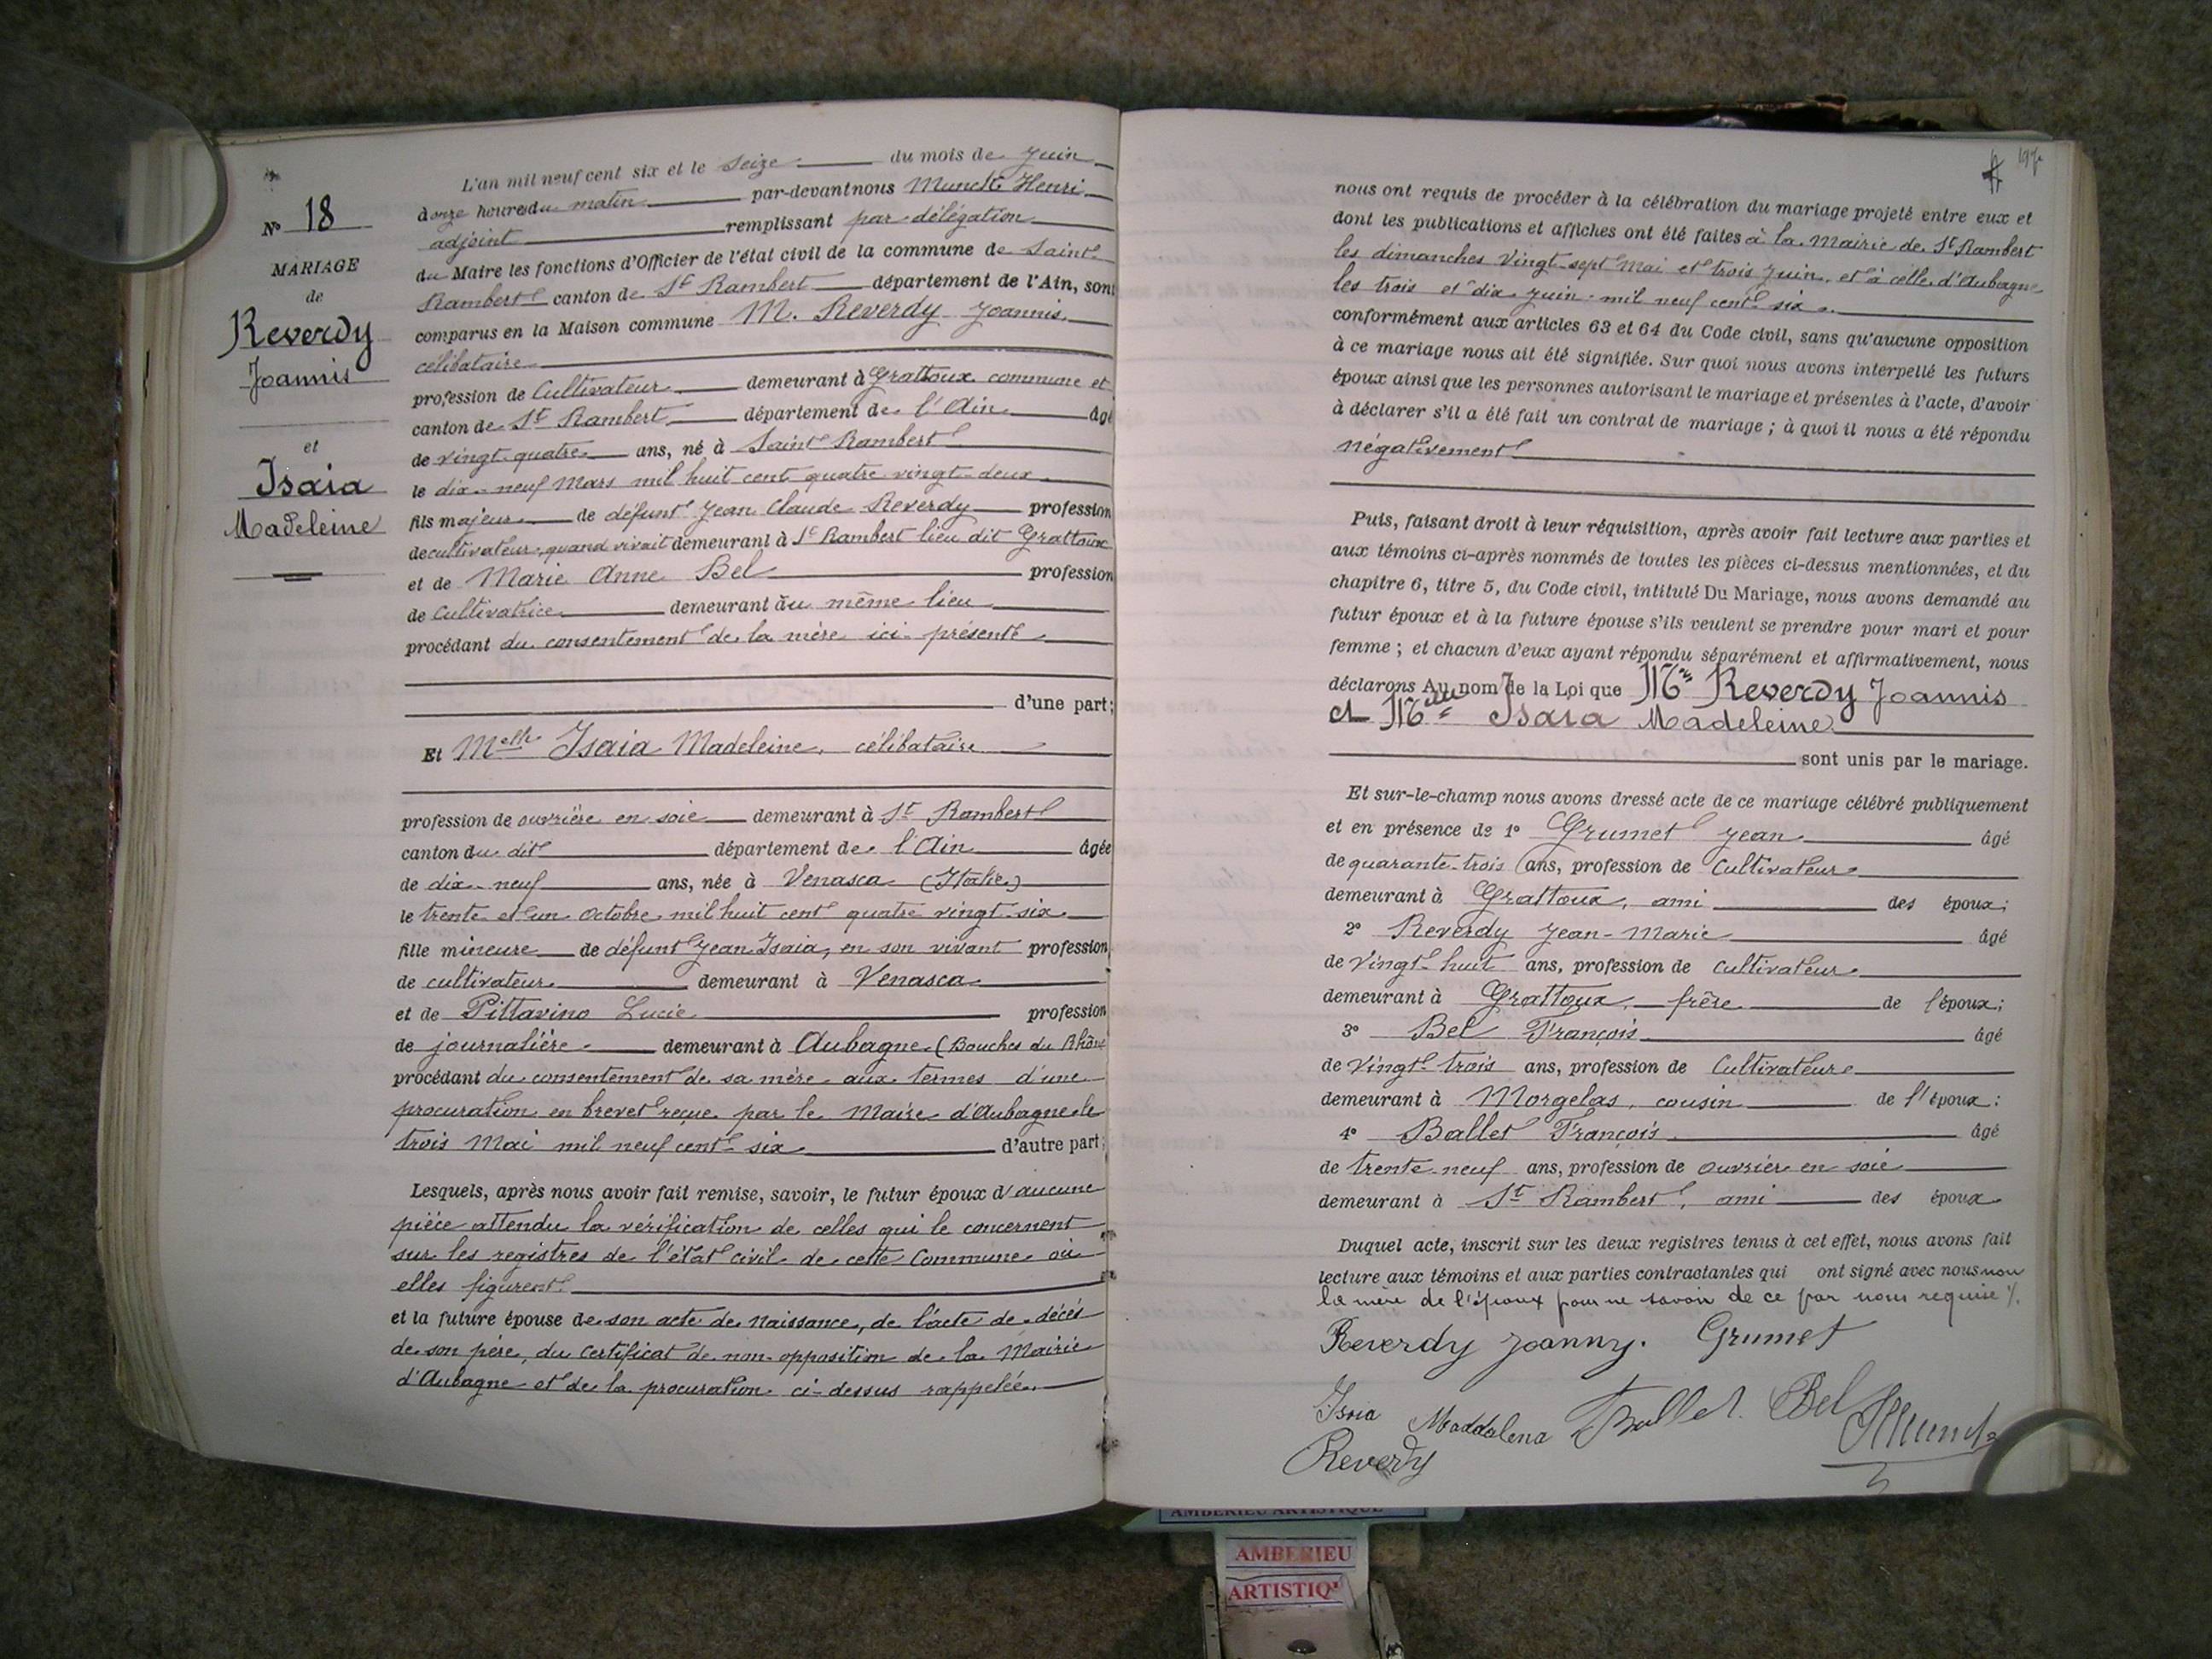 N° 18
MARIAGE
de
Reverdy
Joannis
et
Isaia
Madeleine
L'an mil neuf cent six et le seize du mois de Juin
à onze heures du matin par-devant nous Munck Henri
adjoint remplissant par délégation
du Maire les fonctions d'Officier de l'état civil de la commune de Saint-
Rambert canton de St Rambert département de l'Ain, sont
comparus en la Maison commune M. Reverdy Joannis
célibataire
profession de Cultivateur demeurant à Grattoux commune et
canton de St Rambert département de l'Ain âgé
de vingt-quatre ans, né à Saint Rambert
le dix-neuf Mars mil huit cent quatre vingt-deux
fils majeur de défunt Jean Claude Reverdy profession
de cultivateur, quand vivait demeurant à St Rambert lieu dit Grattoux
et de Marie Anne Bel profession
de Cultivatrice demeurant au même lieu
procédant du consentement de la mère ici présente
d'une part;
Et Melle Isaia Madeleine, célibataire
profession de ouvrière en soie demeurant à St Rambert
canton du dit département de l'Ain âgée
de dix-neuf ans, née à Venasca (Italie)
le trente et un Octobre mil huit cent quatre vingt-six
fille mineure de défunt Jean Isaia, en son vivant profession
de cultivateur demeurant à Venasca
et de Pittavino Lucie profession
de journalière demeurant à Aubagne (Bouches du Rhône
procédant du consentement de sa mère aux termes d'une
procuration en brevet reçue par le Maire d'Aubagne le
trois Mai mil neuf cent six d'autre part;
Lesquels, après nous avoir fait remise, savoir, le futur époux d'aucune
pièce attendu la vérification de celles qui le concernent
sur les registres de l'état civil de cette Commune où
elles figurent
et la future épouse de son acte de naissance, de l'acte de décès
de son père, du certificat de non-opposition de la Mairie
d'Aubagne et de la procuration ci-dessus rappelée.
nous ont requis de procéder à la célébration du mariage projeté entre eux et
dont les publications et affiches ont été faites à la Mairie de St Rambert
les dimanches vingt-sept Mai et trois Juin, et à celle d'Aubagne
les trois et dix Juin mil neuf cent six
conformément aux articles 63 et 64 du Code civil, sans qu'aucune opposition
à ce mariage nous ait été signifiée. Sur quoi nous avons interpellé les futurs
époux ainsi que les personnes autorisant le mariage et présentes à l'acte, d'avoir
à déclarer s'il a été fait un contrat de mariage; à quoi il nous a été répondu
négativement
Puis, faisant droit à leur réquisition, après avoir fait lecture aux parties et
aux témoins ci-après nommés de toutes les pièces ci-dessus mentionnées, et du
chapitre 6, titre 5, du Code civil, intitulé Du Mariage, nous avons demandé au
futur époux et à la future épouse s'ils veulent se prendre pour mari et pour
femme; et chacun d'eux ayant répondu séparément et affirmativement, nous
déclarons Au nom de la Loi que Mr Reverdy Joannis
et Melle Isaia Madeleine
sont unis par le mariage.
Et sur-le-champ nous avons dressé acte de ce mariage célébré publiquement
et en présence de 1° Grumet Jean âgé
de quarante-trois ans, profession de Cultivateur
demeurant à Grattoux, ami des époux;
2° Reverdy Jean-Marie âgé
de Vingt-huit ans, profession de cultivateur
demeurant à Grattoux, frère de l'époux;
3° Bel François âgé
de Vingt-trois ans, profession de Cultivateur
demeurant à Morgelas, cousin de l'époux:
4° Ballet François âgé
de trente-neuf ans, profession de ouvrier en soie
demeurant à St Rambert, ami des époux
Duquel acte, inscrit sur les deux registres tenus à cet effet, nous avons fait
lecture aux témoins et aux parties contractantes qui ont signé avec nous non
la mère de l'époux pour ne savoir de ce par nous requise %.
Reverdy Joanny. Grumet
Isaia Maddalena Ballet. Bel
Reverdy
AMBERIEU ARTISTIQUE
AMBERIEU
ARTISTIQ